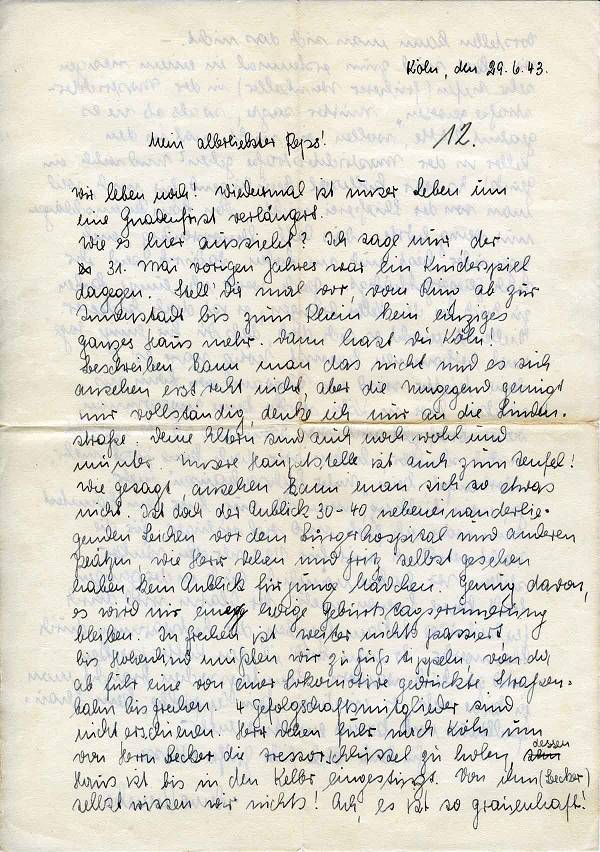 Köln, den 29.6.43.
Mein allerliebster Peps!
12.
Wir leben noch! Wiedermal ist unser Leben um
eine Gnadenfrist verlängert.
Wie es hier aussieht? Ich sage nur, der
31. Mai vorigen Jahres war ein Kinderspiel
dagegen. Stell' Dir mal vor, vom Ring ab zur
Innenstadt bis zum Rhein kein einziges
ganzes Haus mehr. Dann hast du Köln!
Beschreiben kann man das nicht und es sich
ansehen erst recht nicht, aber die Umgegend genügt
mir vollständig, denke ich nur an die Linden-
straße. Deine Eltern sind auch noch wohl und
munter. Unsere Hauptstelle ist auch zum Teufel!
Wie gesagt, ansehen kann man sich so etwas
nicht. Ist doch der Anblick 30-40 nebeneinanderlie-
genden Leichen vor dem Bürgerhospital und anderen
Plätzen, wie Herr Dehen und Fritz selbst gesehen
haben kein Anblick für junge Mädchen. Genug davon,
es wird mir eine ewige Geburtstagserinnerung
bleiben. In Frechen ist weiter nichts passiert,
bis Hohenlind mußten wir zu Fuß tippeln, von da
ab fuhr eine von einer Lokomotive gedrückte Straßen-
bahn bis Frechen. 4 Gefolgschaftsmitglieder sind
nicht erschienen. Herr Dehen fuhr nach Köln um
von Herrn Becker die Tresorschlüssel zu holen, dessen
Haus ist bis in den Keller eingestürzt. Von ihm (Becker)
selbst wissen wir nichts! Ach, es ist so grauenhaft!